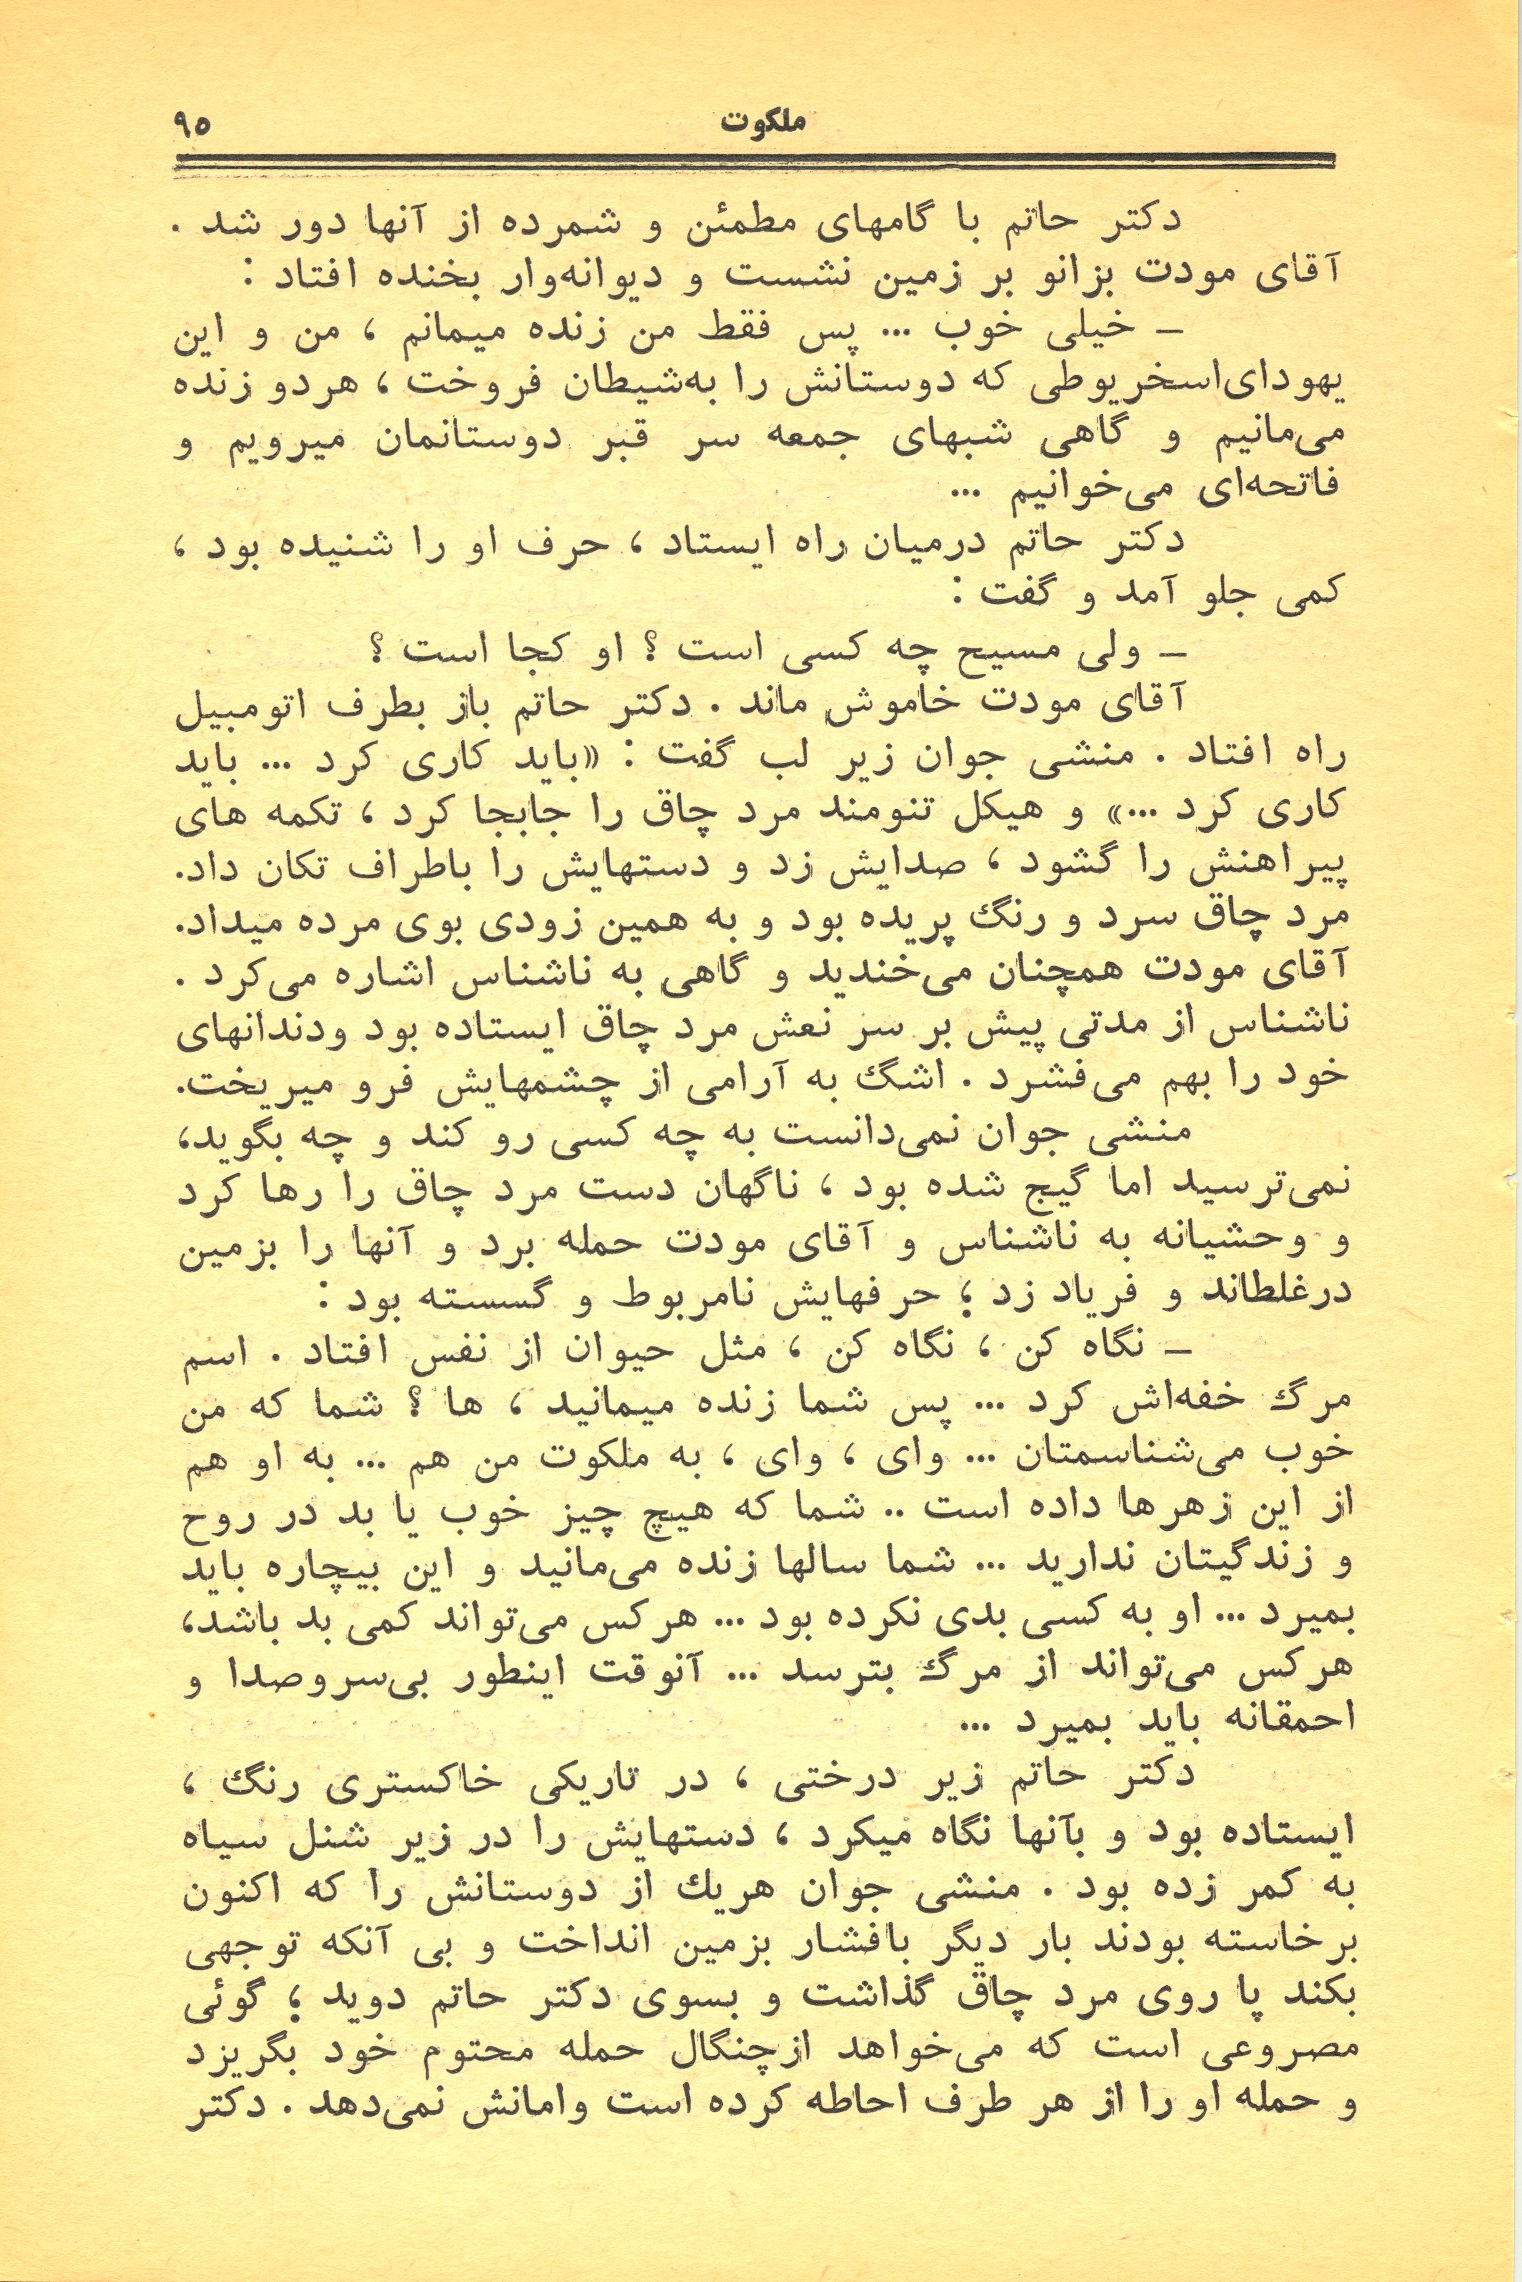 ملکوت
۹۵
دکتر حاتم با گامهای مطمئن و شمرده از آنها دور شد .
آقای مودت بزانو بر زمین نشست و دیوانه‌وار بخنده افتاد :
– خیلی خوب ... پس فقط من زنده میمانم ، من و این
یهودای‌اسخریوطی که دوستانش را به‌شیطان فروخت ، هردو زنده
می‌مانیم و گاهی شبهای جمعه سر قبر دوستانمان میرویم و
فاتحه‌ای می‌خوانیم ...
دکتر حاتم درمیان راه ایستاد ، حرف او را شنیده بود ،
کمی جلو آمد و گفت :
– ولی مسیح چه کسی است ؟ او کجا است ؟
آقای مودت خاموش ماند . دکتر حاتم باز بطرف اتومبیل
راه افتاد . منشی جوان زیر لب گفت : «باید کاری کرد ... باید
کاری کرد ...» و هیکل تنومند مرد چاق را جابجا کرد ، تکمه های
پیراهنش را گشود ، صدایش زد و دستهایش را باطراف تکان داد.
مرد چاق سرد و رنگ پریده بود و به همین زودی بوی مرده میداد.
آقای مودت همچنان می‌خندید و گاهی به ناشناس اشاره می‌کرد .
ناشناس از مدتی پیش بر سر نعش مرد چاق ایستاده بود ودندانهای
خود را بهم می‌فشرد . اشگ به آرامی از چشمهایش فرو میریخت.
منشی جوان نمی‌دانست به چه کسی رو کند و چه بگوید،
نمی‌ترسید اما گیج شده بود ، ناگهان دست مرد چاق را رها کرد
و وحشیانه به ناشناس و آقای مودت حمله برد و آنها را بزمین
درغلطاند و فریاد زد ؛ حرفهایش نامربوط و گسسته بود :
– نگاه کن ، نگاه کن ، مثل حیوان از نفس افتاد . اسم
مرگ خفه‌اش کرد ... پس شما زنده میمانید ، ها ؟ شما که من
خوب می‌شناسمتان ... وای ، وای ، به ملکوت من هم ... به او هم
از این زهرها داده است .. شما که هیچ چیز خوب یا بد در روح
و زندگیتان ندارید ... شما سالها زنده می‌مانید و این بیچاره باید
بمیرد ... او به کسی بدی نکرده بود ... هرکس می‌تواند کمی بد باشد،
هرکس می‌تواند از مرگ بترسد ... آنوقت اینطور بی‌سروصدا و
احمقانه باید بمیرد ...
دکتر حاتم زیر درختی ، در تاریکی خاکستری رنگ ،
ایستاده بود و بآنها نگاه میکرد ، دستهایش را در زیر شنل سیاه
به کمر زده بود . منشی جوان هریك از دوستانش را که اکنون
برخاسته بودند بار دیگر بافشار بزمین انداخت و بی آنکه توجهی
بکند پا روی مرد چاق گذاشت و بسوی دکتر حاتم دوید ؛ گوئی
مصروعی است که می‌خواهد ازچنگال حمله محتوم خود بگریزد
و حمله او را از هر طرف احاطه کرده است وامانش نمی‌دهد . دکتر